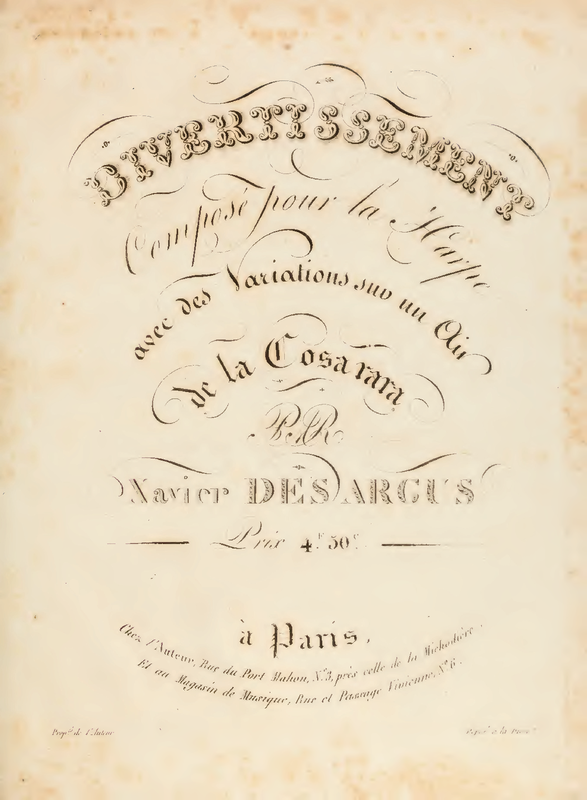 DIVERTISSEMENT
Composé pour la Harpe
avec des Variations sur un Air
de la Cosa rara
PAR
Xavier DÉSARGUS
Prix 4.f 50.c
à Paris.
Chez l'Auteur, Rue du Port Mahon, N.o 3, près celle de la Michodière.
Et au Magasin de Musique, Rue et Passage Vivienne, N.o 6.
Prop.té de l'Auteur
à la